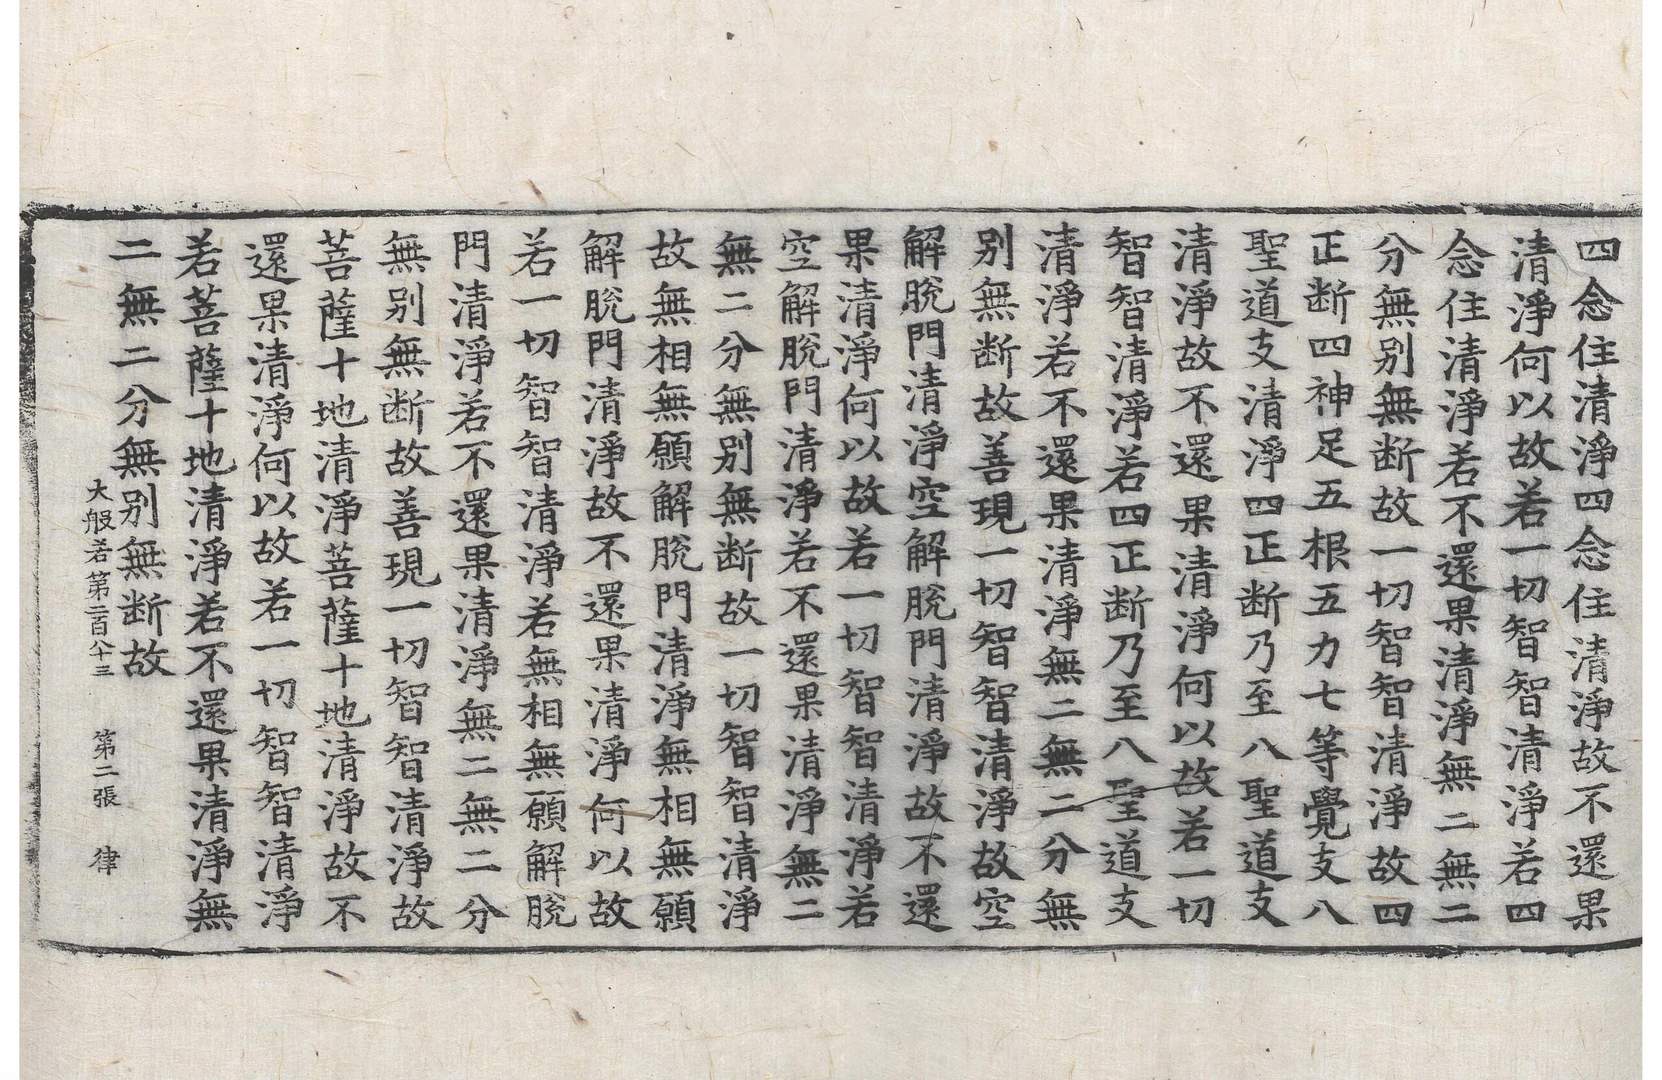 四念住清淨四念住清淨故不還果
清淨何以故若一切智智清淨若四
念住清淨若不還果清淨無二無二
分無別無断故一切智智清淨故四
正断四神足五根五力七等覺支八
聖道支清淨四正断乃至八聖道支
清淨故不還果清淨何以故若一切
智智清淨若四正断乃至八聖道支
清淨若不還果清淨無二無二分無
別無断故善現一切智智清淨故空
解脫門清淨空解脫門清淨故不還
果清淨何以故若一切智智清淨若
空解脫門清淨若不還果清淨無二
無二分無別無断故一切智智清淨
故無相無願解脫門清淨無相無願
解脫門清淨故不還果清淨何以故
若一切智智清淨若無相無願解脫
門清淨若不還果清淨無二無二分
無別無断故善現一切智智清淨故
菩薩十地清淨菩薩十地清淨故不
還果清淨何以故若一切智智清淨
若菩薩十地清淨若不還果清淨無
二無二分無別無断故
大般若第二百八十三 第二張 律